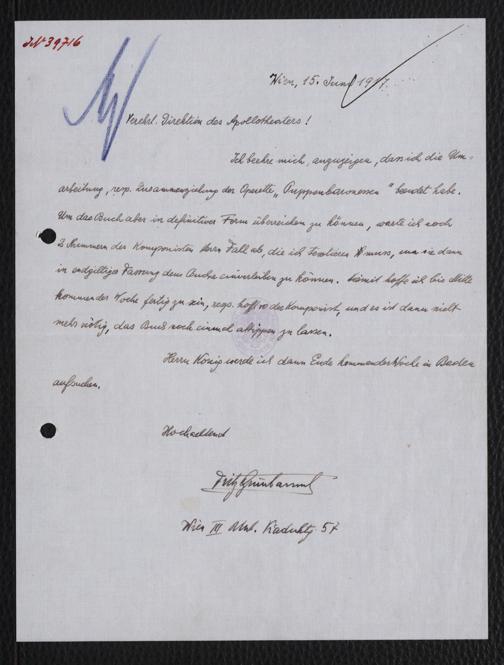 JN 39716
Wien, 15. Juni 1917.
Verehrl. Direktion des Apollotheaters!
Ich beehre mich, anzuzeigen, dass ich die Um-
arbeitung, resp. Zusammenziehung der Operette „Puppenbaronessen" beendet habe.
Um das Buch aber in definitiver Form überreichen zu können, warte ich noch
2 Nummern des Komponisten Herrn Fall ab, die ich textieren muss, um sie dann
in endgültiger Fassung dem Buche einverleiben zu können. Damit hoffe ich bis Mitte
kommender Woche fertig zu sein, resp. hofft es der Komponist, und es ist dann nicht
mehr nötig, das Buch noch einmal abtippen zu lassen.
Herrn König werde ich dann Ende kommender Woche in Baden
aufsuchen.
Hochachtend
Fritz Grünbaum
Wien III
57